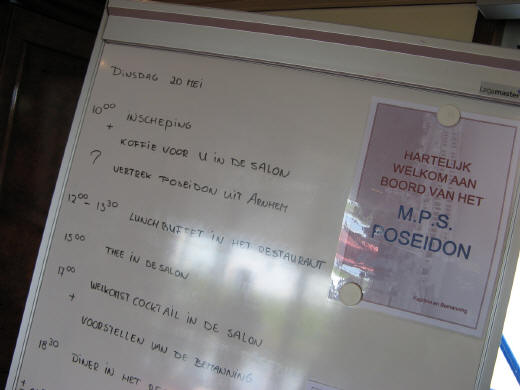 Legamaster
DINSDAG 20 MEI
10⁰⁰ INSCHEPING
+ KOFFIE VOOR U IN DE SALON
? VERTREK POSEIDON UIT ARNHEM
12⁰⁰ - 13³⁰ LUNCHBUFFET IN HET RESTAURANT
15⁰⁰ THEE IN DE SALON
17⁰⁰ WELKOMST COCKTAIL IN DE SALON
+ VOORSTELLEN VAN DE BEMANNING
18³⁰ DINER IN HET
HARTELIJK
WELKOM AAN
BOORD VAN HET
M.P.S.
POSEIDON
Kapitein en Bemanning